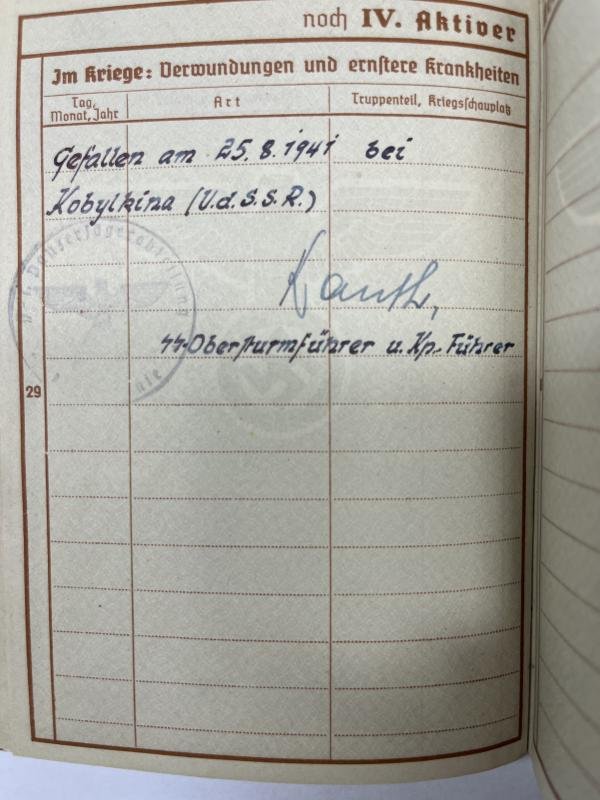 noch IV. Aktiver
Im Kriege: Verwundungen und ernstere Krankheiten
Tag, Monat, Jahr
Art
Truppenteil, Kriegsschauplatz
Gefallen am 25.8.1941 bei
Kobylkina (U.d.S.S.R.)
Panzerjägerabteilung
SS-Obersturmführer u. Kp.-Führer
29